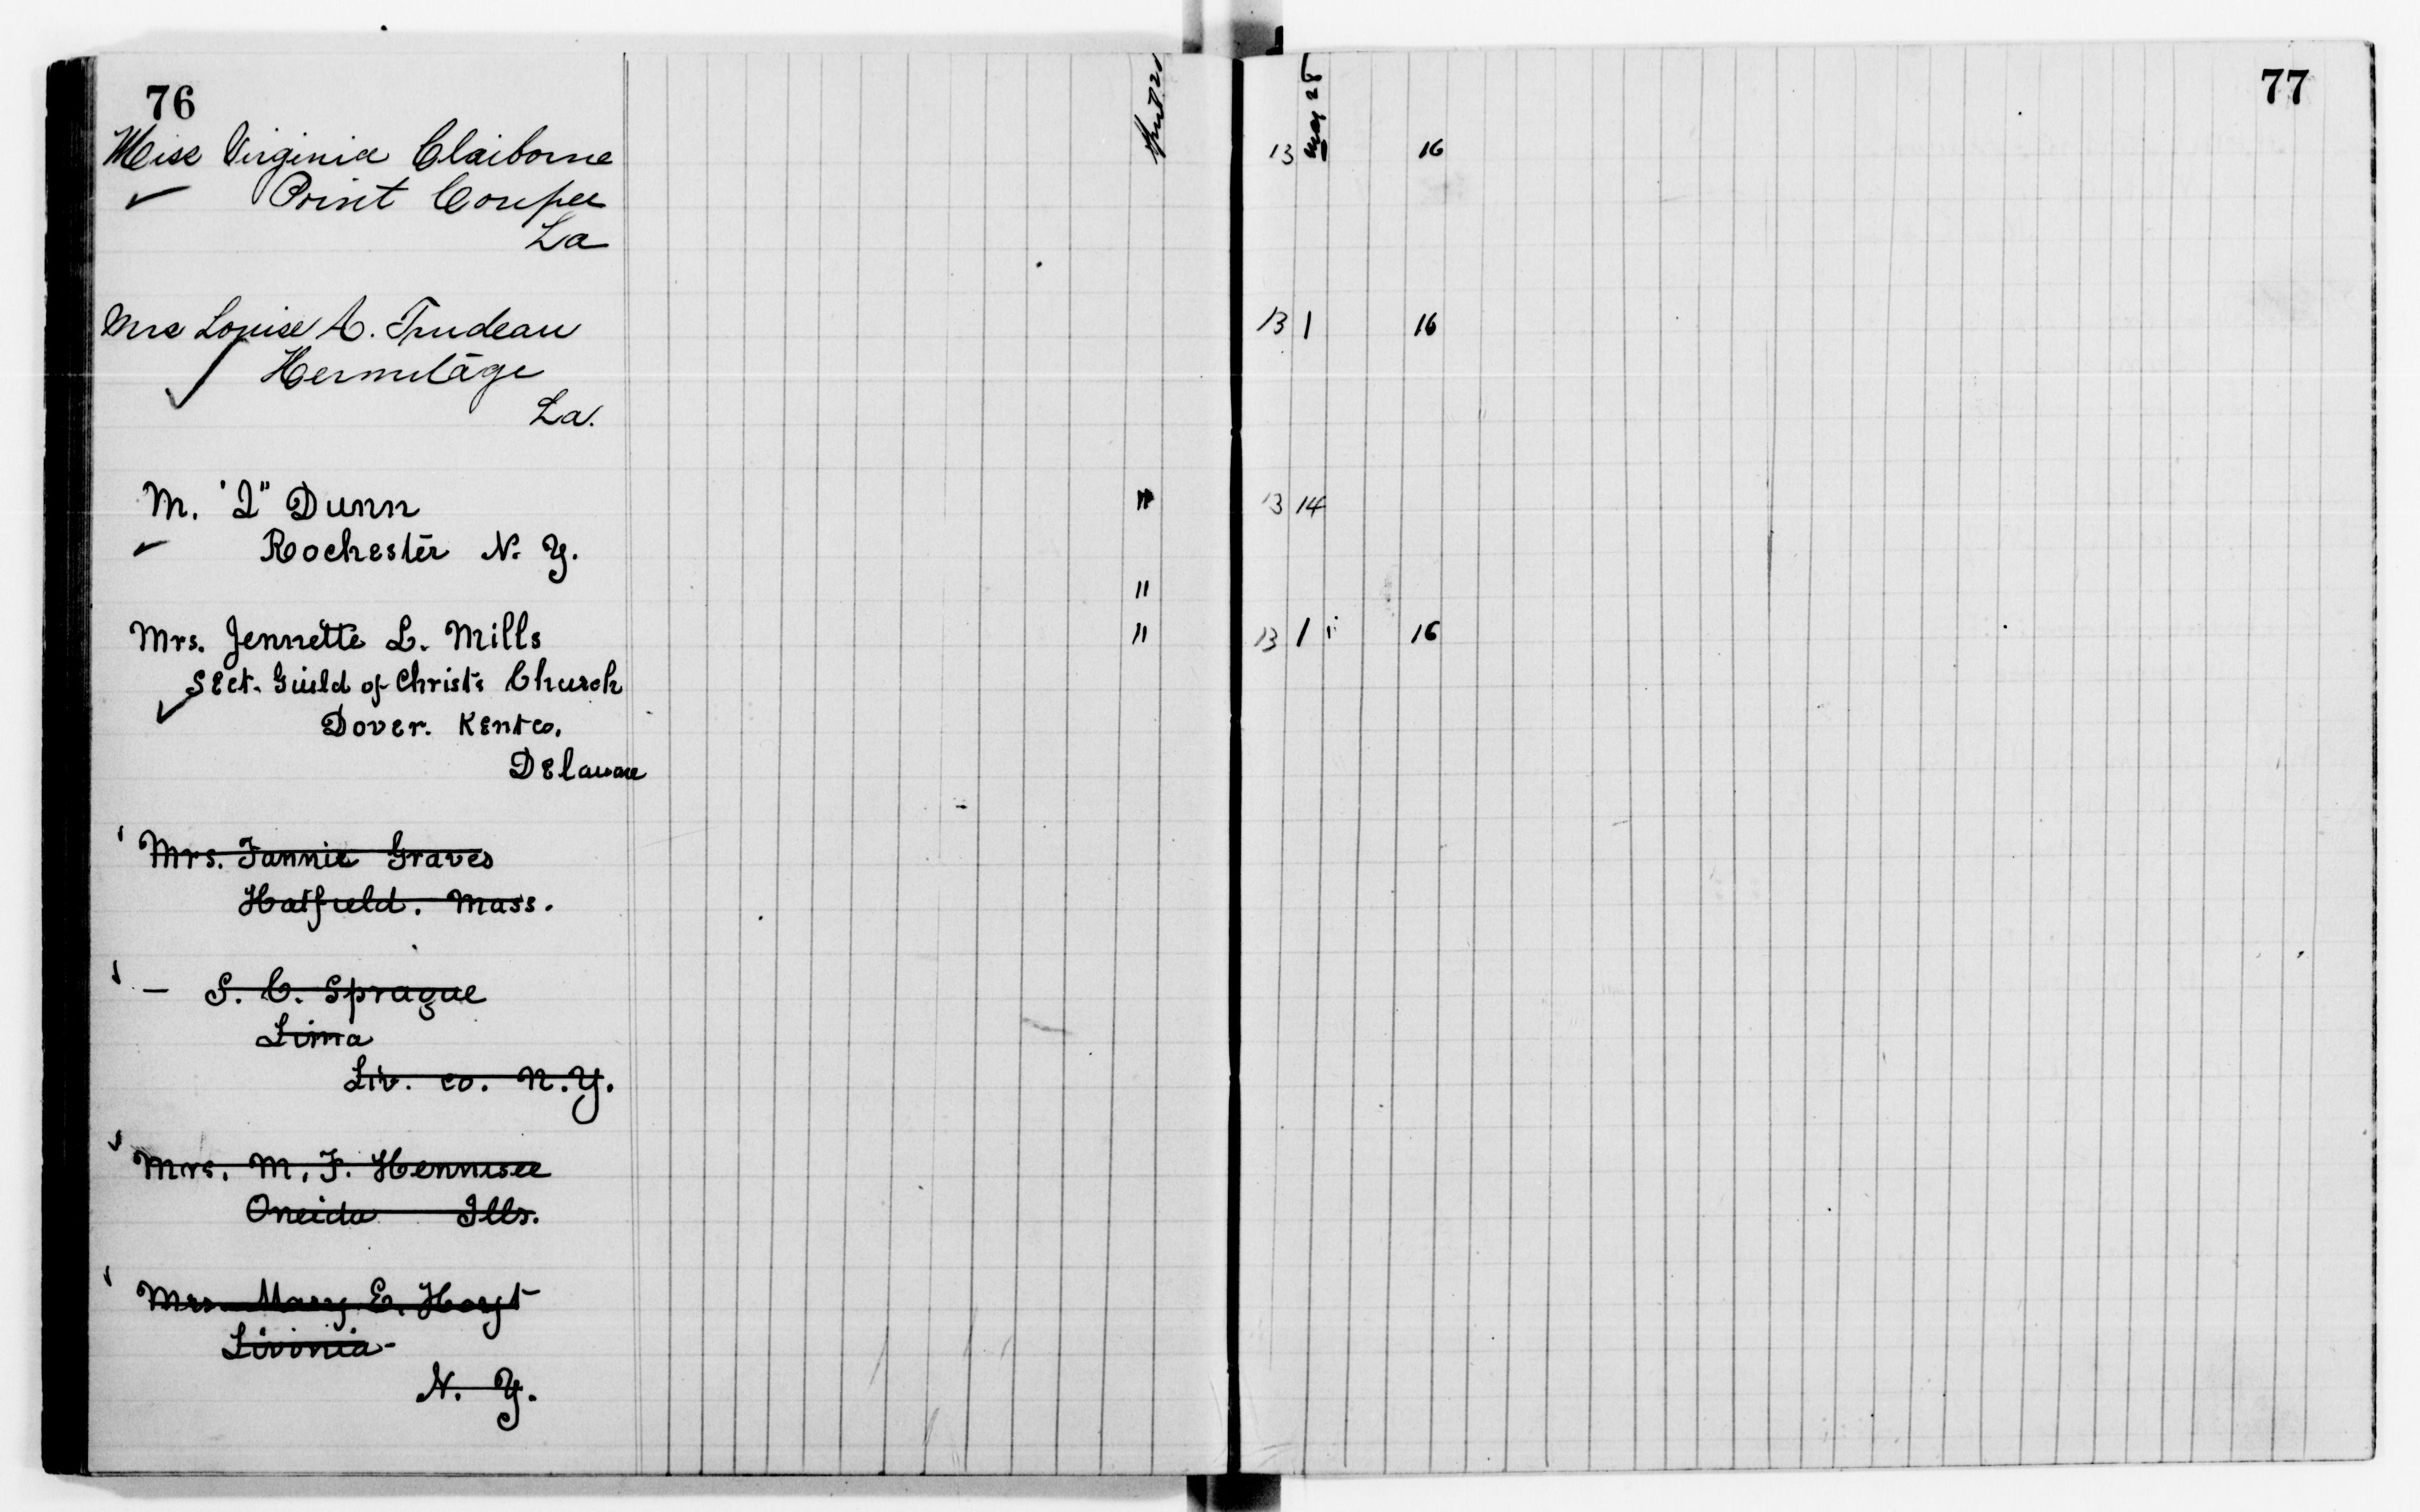 76
77
Miss Virginia Claiborne 13 May 28 16
Point Coupee
La
Mrs Louise A. Trudeau 13 1 16
Hermitage
La.
M. "I" Dunn " 13 14
Rochester N. Y.
"
Mrs. Jennette L. Mills " 13 1 16
Sect. Guild of Christ's Church
Dover. Kent co.
Delaware
Mrs. Fannie Graves
Hatfield. Mass.
— S. C. Sprague
Lima
Liv. co. N.Y.
Mrs. M. F. Hennisee
Oneida Ills.
Mrs. Mary E. Hoyt
Livonia-
N. Y.